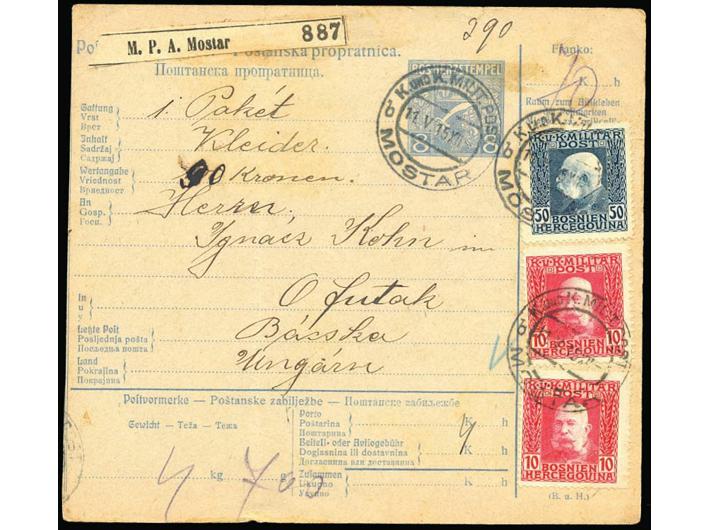 M. P. A. Mostar 887
290
Poštanska propratnica.
Поштанска пропратница.
BOSNIEN STEMPEL
8 8
K. UND K. MILIT. POST
11.V.15
MOSTAR
Franko:
K h
Raum zum Aufkleben
Gattung
Vrst
Врст
1. Pakét
Inhalt
Sadržaj
Садржај
Kleider.
Wertangabe
Vriednost
Вриједност
90 Kronen.
An
Gosp.
Госп.
Herrn.
Ignácz Kohn in
In
U
У
O futak
Letzte Post
Posljednja pošta
Посљедња пошта
Bácska
Land
Pokrajina
Покрајина
Ungárn
K.u.K. MILITÄR
POST
50 50
BOSNIEN
HERCEGOVINA
K.u.K. MILITÄR
POST
10 10
BOSNIEN
HERCEGOVINA
K.u.K. MILITÄR
POST
10 10
BOSNIEN
HERCEGOVINA
Postvormerke – Poštanske zabilježbe – Поштанске забиљежбе
Gewicht - Teža - Тежа
kg g
4 700
Porto
Poštarina
Поштарина
K h
Bestell- oder Avisogebühr
Dostavnina ili
K h
Zusammen
Ukupno
Укупно
K h
(B. u. H.)